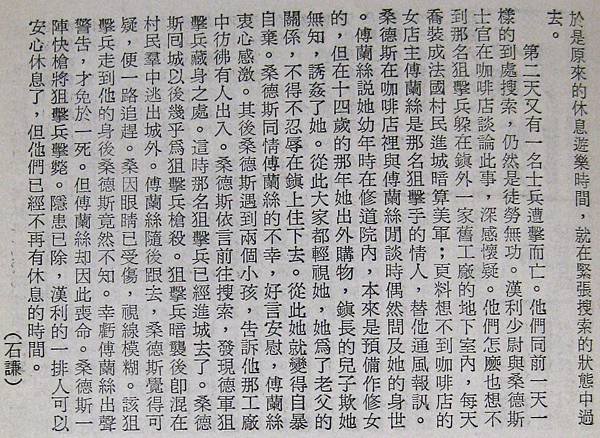 於是原來的休息遊樂時間，就在緊張搜索的狀態中過
去。
第二天又有一名士兵遭擊而亡。他們同前一天一
樣的到處搜索，仍然是徒勞無功。漢利少尉與桑德斯
士官在咖啡店談論此事，深感懷疑。他們怎麼也想不
到那名狙擊兵躲在鎮外一家舊工廠的地下室內，每天
喬裝成法國村民進城暗算美軍；更料想不到咖啡店的
女店主傅蘭絲是那名狙擊手的情人，替他通風報訊。
桑德斯在咖啡店裡與傅蘭絲閒談時偶然問及她的身世
。傅蘭絲說她幼年時在修道院內，本來是預備作修女
的，但在十四歲的那年她出外購物，鎮長的兒子欺她
無知，誘姦了她。從此大家都輕視她，她爲了老父的
關係，不得不忍辱在鎮上住下去。從此她就變得自暴
自棄。桑德斯同情傅蘭絲的不幸，好言安慰，傅蘭絲
衷心感激。其後桑德斯遇到兩個小孩，告訴他那工廠
中彷彿有人出入。桑德斯依言前往搜索，發現德軍狙
擊兵藏身之處。這時那名狙擊兵已經進城去了。桑德
斯囘城以後幾乎爲狙擊兵槍殺。狙擊兵暗襲後卽混在
村民羣中逃出城外。傅蘭絲隨後跟去，桑德斯覺得可
疑，便一路追趕。桑因眼睛已受傷，視線模糊。該狙
擊兵走到他的身後桑德斯竟然不知。幸虧傅蘭絲出聲
警告，才免於一死。但傅蘭絲却因此喪命。桑德斯一
陣快槍將狙擊兵擊斃。隱患已除，漢利的一排人可以
安心休息了，但他們已經不再有休息的時間。
（石謙）